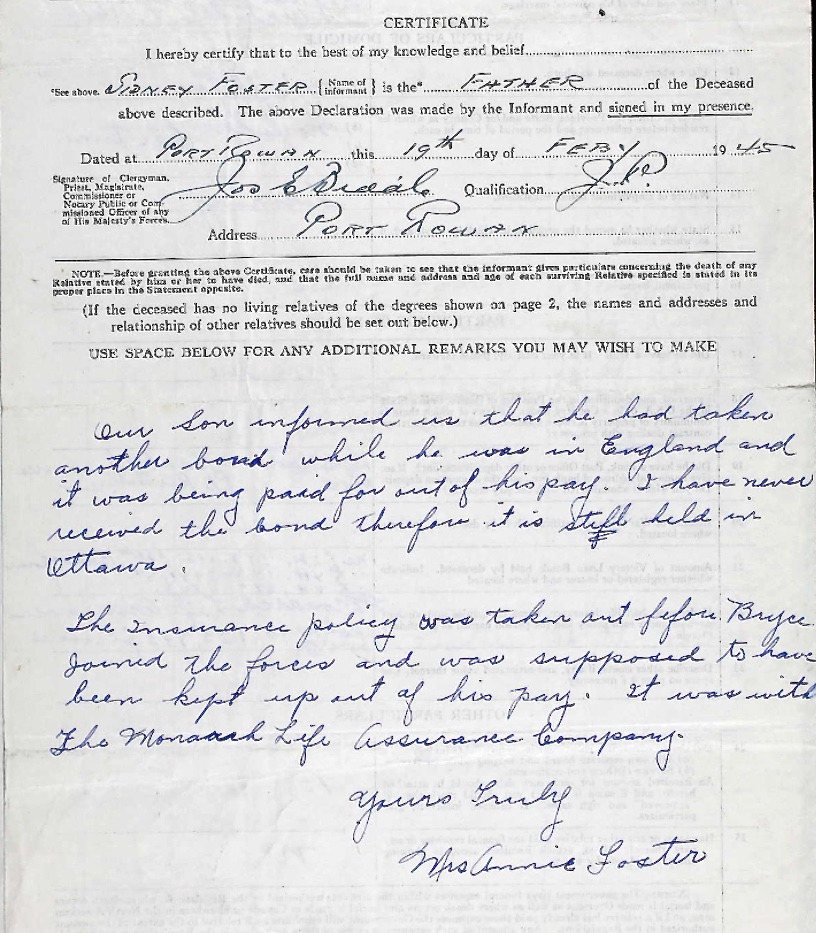 CERTIFICATE
I hereby certify that to the best of my knowledge and belief
*See above. SIDNEY FOSTER {Name of informant} is the* FATHER of the Deceased
above described. The above Declaration was made by the Informant and signed in my presence.
Dated at PORT ROWAN this 19th day of FEBY 1945
Signature of Clergyman,
Priest, Magistrate,
Commissioner or
Notary Public or Com-
missioned Officer of any
of His Majesty's Forces.
Jos E Qualification J.P.
Address PORT ROWAN
NOTE.—Before granting the above Certificate, care should be taken to see that the informant gives particulars concerning the death of any
Relative stated by him or her to have died, and that the full name and address and age of each surviving Relative specified is stated in its
proper place in the Statement opposite.
(If the deceased has no living relatives of the degrees shown on page 2, the names and addresses and
relationship of other relatives should be set out below.)
USE SPACE BELOW FOR ANY ADDITIONAL REMARKS YOU MAY WISH TO MAKE
Our Son informed us that he had taken
another bond while he was in England and
it was being paid for out of his pay. I have never
received the bond therefore it is still held in
Ottawa.
The Insurance policy was taken out fefore Bryce
Joined the forces and was supposed to have
been kept up out of his pay. It was with
The Monarch Life Assurance Company.
Yours Truly
Mrs Annie Foster